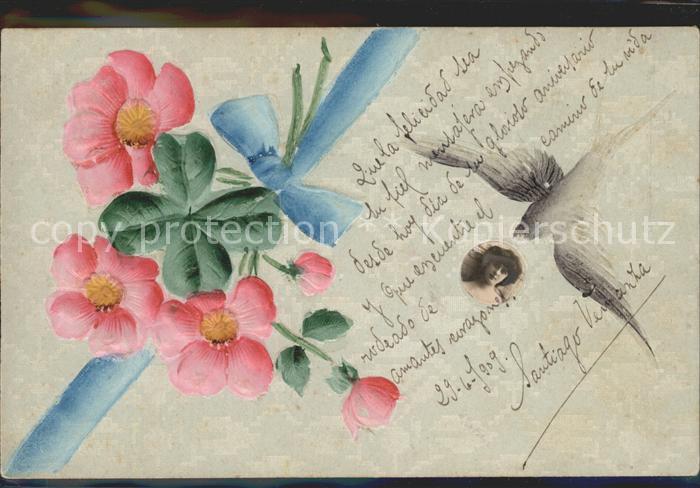 Que la felicidad sea
tu fiel mensajera empezando
desde hoy día de tu glorioso aniversario
Y que encuentre el camino de tu vida
rodeado de
amantes corazones.
29-6-1909.
Santiago
copy protection · Kopierschutz